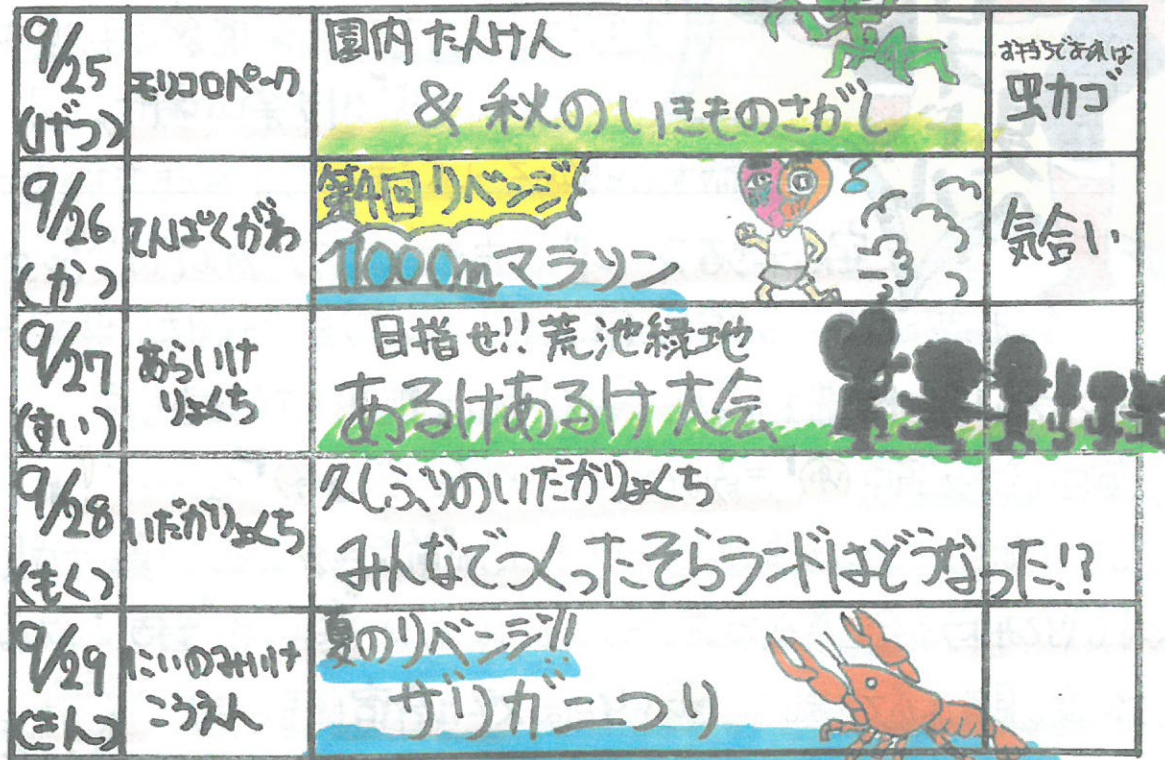 9/25
(げつ)
モリコロパーク
園内たんけん
& 秋のいきものさがし
お持ちであれば
虫カゴ
9/26
(か)
てんぱくがわ
第4回リベンジ
1000mマラソン
気合い
9/27
(すい)
あらいけ
りょくち
目指せ!!荒池緑地
あるけあるけ大会
9/28
(もく)
いだかりょくち
久しぶりのいだかりょくち
みんなでつくったそらランドはどうなった!?
9/29
(きん)
にいのみいけ
こうえん
夏のリベンジ!!
ザリガニつり